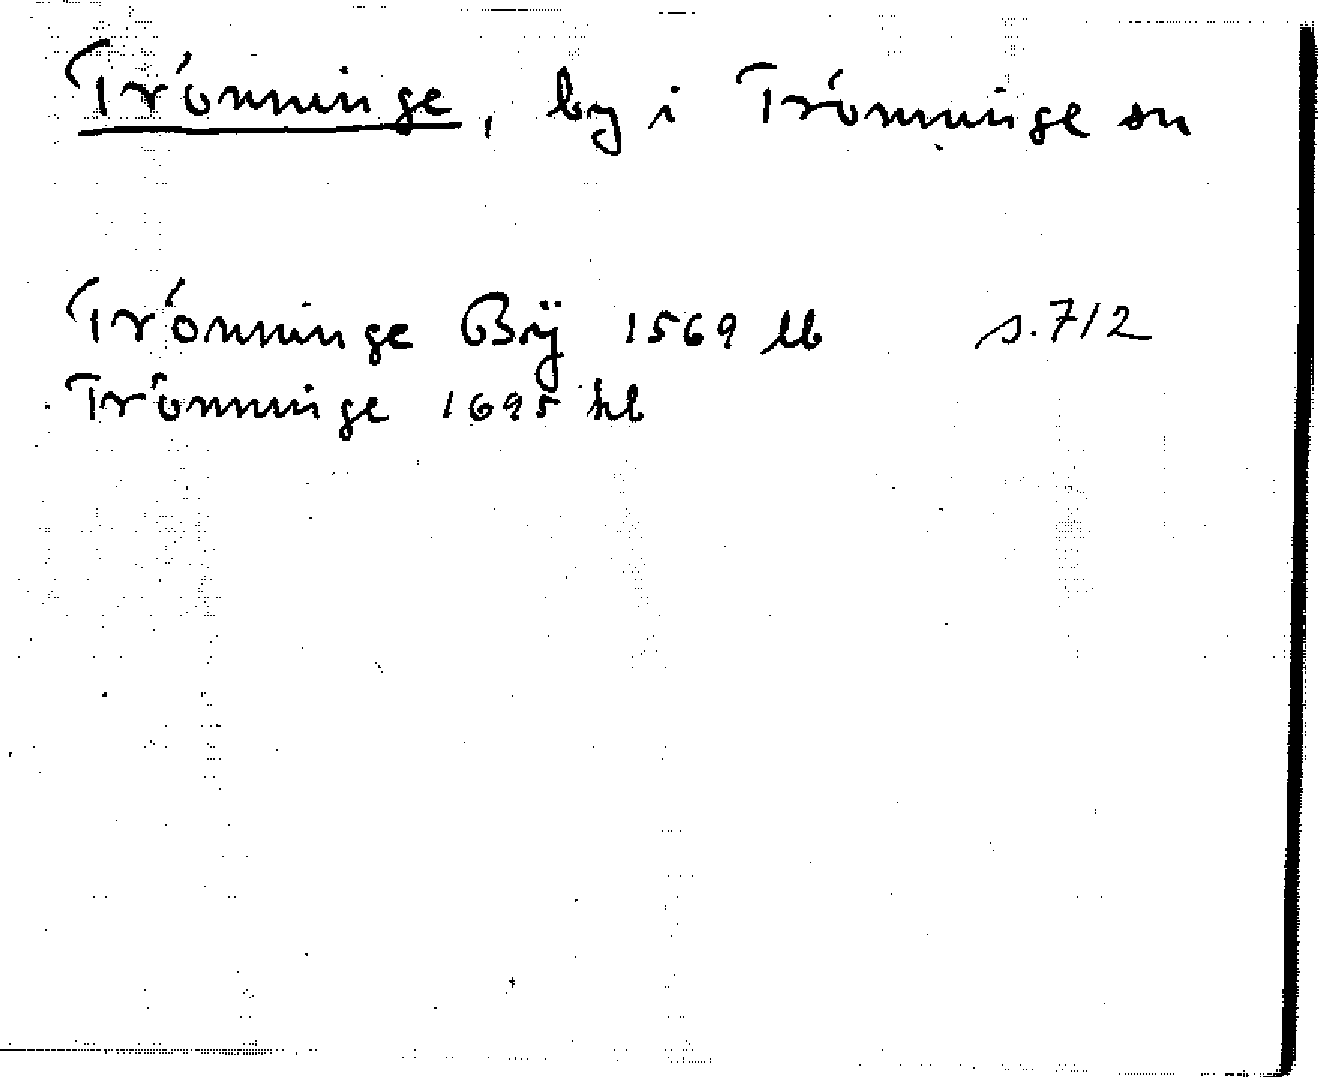 Trönninge, by i Trönninge sn
Trönninge Bÿ 1569 lb s. 712
Trönninge 1695 hb